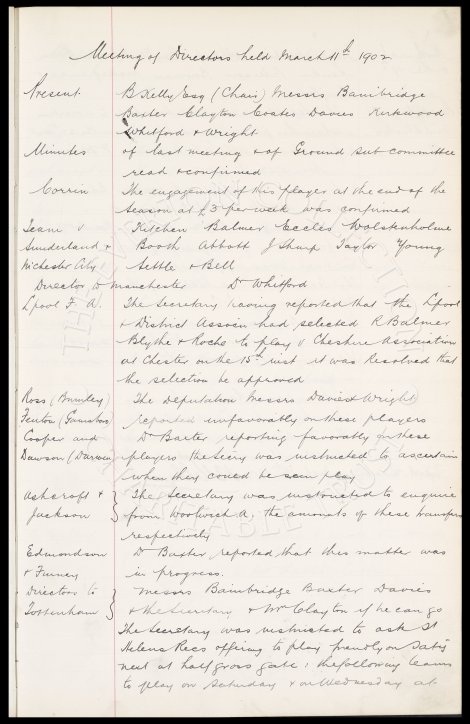 Meeting of Directors held March 11th 1902
Present B Kelly Esq (Chair) Messrs Bainbridge
Baxter Clayton Coates Davies Kirkwood
Whitford & Wright
Minutes of last meeting & of Ground Sub committee
read & confirmed
Corrin The engagement of this player at the end of the
season at £3 per week was confirmed
Team v Kitchen Balmer Eccles Wolstenholme
Sunderland & Booth Abbott J Sharp Taylor Young
M'chester City Settle & Bell
Director to Manchester Dr Whitford
L'pool F. A. The Secretary having reported that the L'pool
& District Associn had selected R Balmer
Blythe & Roche to play v Cheshire Association
at Chester on the 15th inst it was Resolved that
the selection be approved
Ross (Burnley) The Deputation Messrs Davies & Wright
Fenton (Gainsboro) reported unfavorably on these players
Cooper and Dr Baxter reporting favorably on these
Dawson (Darwen) players the Secy was instructed to ascertain
when they could be seen play
Ashcroft & The Secretary was instructed to enquire
Jackson from Woolwich A. the amounts of these transfers
respectively
Edmondson Dr Baxter reported that this matter was
& Finney in progress.
Directors to Messrs Bainbridge Baxter Davies
Tottenham & the Secretary & Mr Clayton if he can go
The Secretary was instructed to ask St
Helens Recs offering to play friendly on Satdy
next at half gross gate: the following teams
to play on Saturday & on Wednesday at